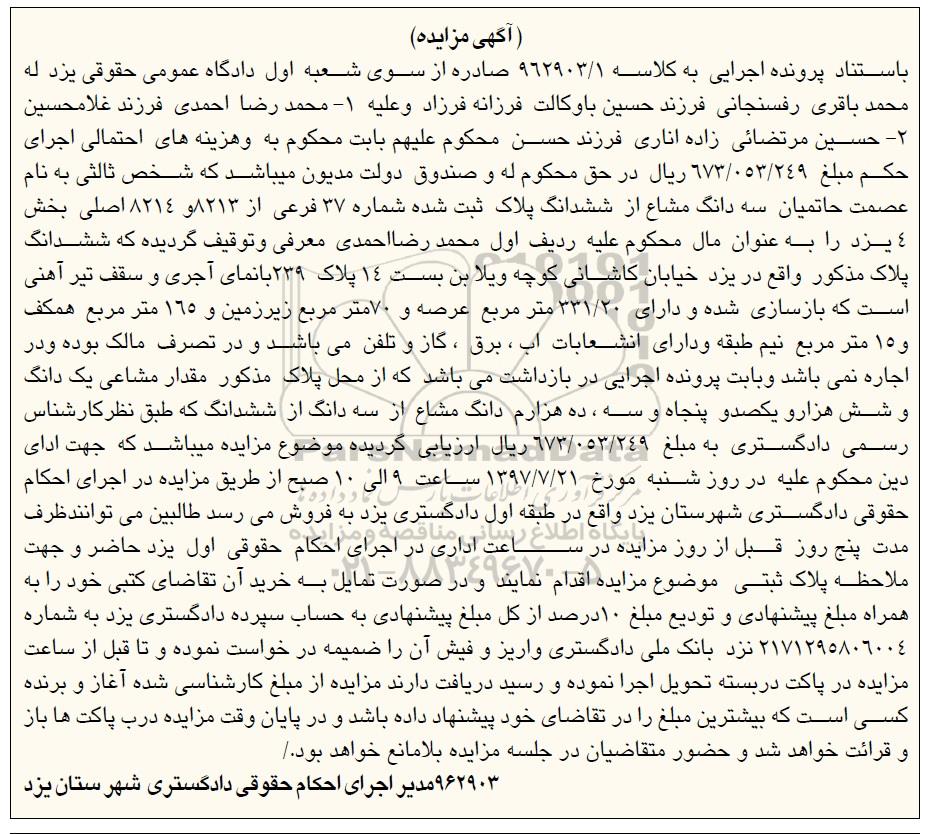 ( آگهی مزایده)
باستناد پرونده اجرایی به کلاسه ۹۶۲۹۰۳/۱ صادره از سوی شعبه اول دادگاه عمومی حقوقی یزد له
محمد باقری رفسنجانی فرزند حسین باوکالت فرزانه فرزاد وعلیه ۱- محمد رضا احمدی فرزند غلامحسین
۲- حسین مرتضائی زاده اناری فرزند حسن محکوم علیهم بابت محکوم به وهزینه های احتمالی اجرای
حکم مبلغ ۶۷۳/۰۵۳/۲۴۹ ریال در حق محکوم له و صندوق دولت مدیون میباشد که شخص ثالثی به نام
عصمت حاتمیان سه دانگ مشاع از ششدانگ پلاک ثبت شده شماره ۳۷ فرعی از ۸۲۱۳و ۸۲۱۴ اصلی بخش
۴ یزد را به عنوان مال محکوم علیه ردیف اول محمد رضااحمدی معرفی وتوقیف گردیده که ششدانگ
پلاک مذکور واقع در یزد خیابان کاشانی کوچه ویلا بن بست ۱۴ پلاک ۲۳۹بانمای آجری و سقف تیر آهنی
است که بازسازی شده و دارای ۳۳۱/۲۰ متر مربع عرصه و ۷۰متر مربع زیرزمین و ۱۶۵ متر مربع همکف
و۱۵ متر مربع نیم طبقه ودارای انشعابات اب ، برق ، گاز و تلفن می باشد و در تصرف مالک بوده ودر
اجاره نمی باشد وبابت پرونده اجرایی در بازداشت می باشد که از محل پلاک مذکور مقدار مشاعی یک دانگ
و شش هزارو یکصدو پنجاه و سه ، ده هزارم دانگ مشاع از سه دانگ از ششدانگ که طبق نظرکارشناس
رسمی دادگستری به مبلغ ۶۷۳/۰۵۳/۲۴۹ ریال ارزیابی گردیده موضوع مزایده میباشد که جهت ادای
دین محکوم علیه در روز شنبه مورخ ۱۳۹۷/۷/۲۱ ساعت ۹ الی ۱۰ صبح از طریق مزایده در اجرای احکام
حقوقی دادگستری شهرستان یزد واقع در طبقه اول دادگستری یزد به فروش می رسد طالبین می توانندظرف
مدت پنج روز قبل از روز مزایده در ساعت اداری در اجرای احکام حقوقی اول یزد حاضر و جهت
ملاحظه پلاک ثبتی موضوع مزایده اقدام نمایند و در صورت تمایل به خرید آن تقاضای کتبی خود را به
همراه مبلغ پیشنهادی و تودیع مبلغ ۱۰درصد از کل مبلغ پیشنهادی به حساب سپرده دادگستری یزد به شماره
۲۱۷۱۲۹۵۸۰۶۰۰۴ نزد بانک ملی دادگستری واریز و فیش آن را ضمیمه در خواست نموده و تا قبل از ساعت
مزایده در پاکت دربسته تحویل اجرا نموده و رسید دریافت دارند مزایده از مبلغ کارشناسی شده آغاز و برنده
کسی است که بیشترین مبلغ را در تقاضای خود پیشنهاد داده باشد و در پایان وقت مزایده درب پاکت ها باز
و قرائت خواهد شد و حضور متقاضیان در جلسه مزایده بلامانع خواهد بود./
۹۶۲۹۰۳مدیر اجرای احکام حقوقی دادگستری شهر ستان یزد
ParsNamadData
مرکز فرآوری اطلاعات پارس نماد داده ها
پایگاه اطلاع رسانی مناقصه و مزایده
۰۲۱-۸۸۳۴۹۶۷۰-۵